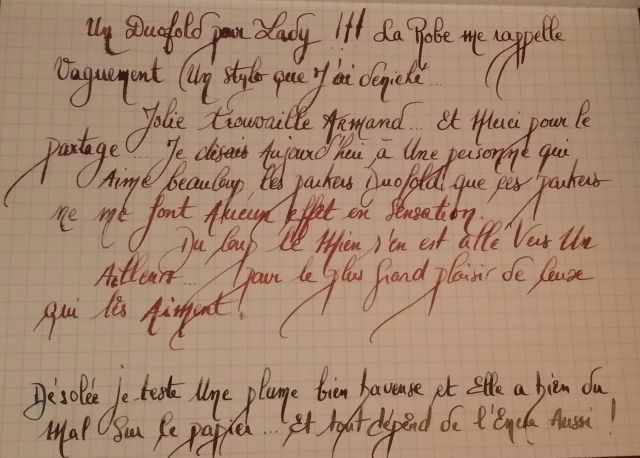 Un Duofold pour Lady !!! La Robe me rappelle
Vaguement Un stylo que J'ai déniché...
Jolie trouvaille Armand... Et Merci pour le
partage... Je disais Aujourd'hui à Une personne qui
Aime beaucoup les parkers Duofold que ces parkers
ne me font Aucun effet en Sensation.
Du coup le Mien s'en est allé Vers Un
Ailleurs... pour le plus Grand plaisir de ceux
qui les Aiment!
Désolée je teste Une plume bien baveuse et Elle a bien du
Mal Sur le papier... Et tout dépend de l'Encre Aussi!